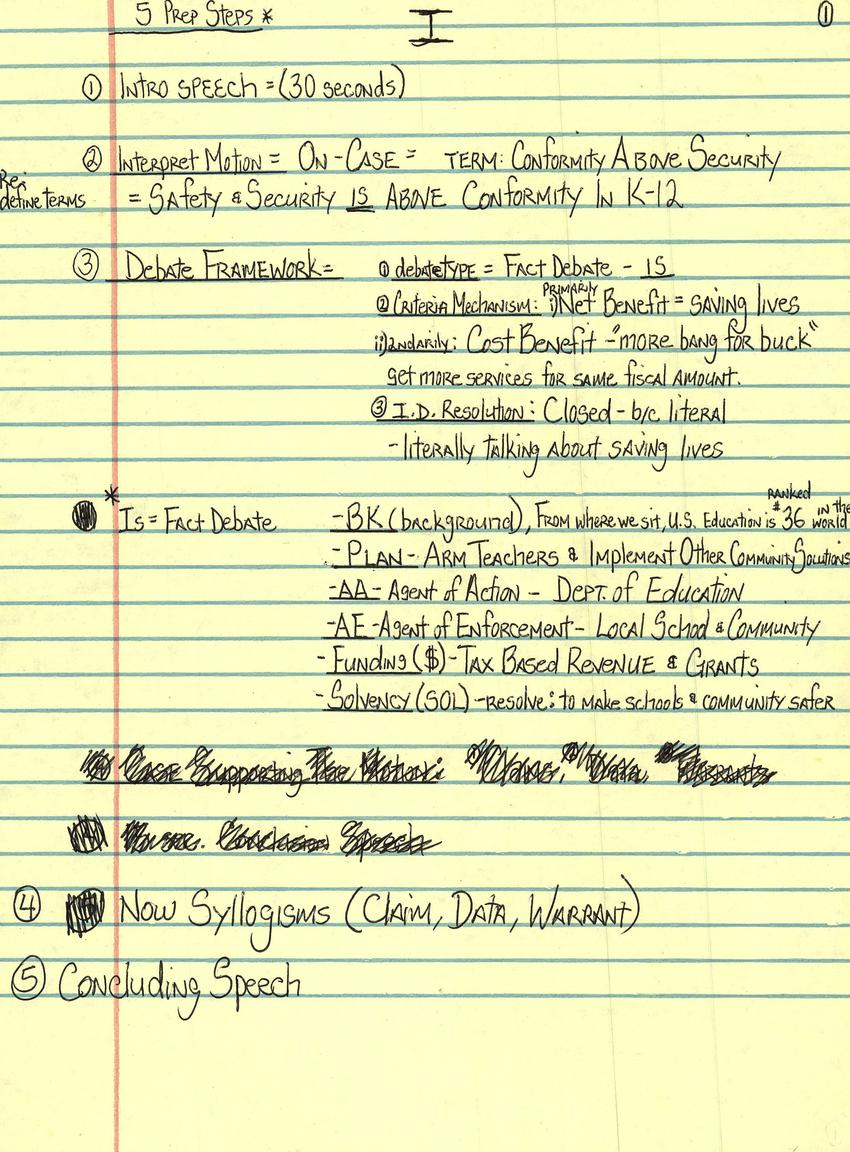 5 Prep Steps * I ①
① Intro speech = (30 seconds)
② Interpret Motion = On-Case = Term: Conformity Above Security
Re: define terms = Safety & Security IS Above Conformity In K-12
③ Debate Framework= ① debate type = Fact Debate - IS
② Criteria Mechanism: primarily i) Net Benefit = saving lives
ii) 2ndarily: Cost Benefit - "more bang for buck"
get more services for same fiscal amount.
③ I.D. Resolution: Closed - b/c literal
- literally talking about saving lives
* Is = Fact Debate - BK (background), From where we sit, U.S. Education is ranked #36 in the world
- Plan - Arm Teachers & Implement Other Community Solutions
- AA - Agent of Action - Dept. of Education
- AE - Agent of Enforcement - Local School & Community
- Funding ($) - Tax Based Revenue & Grants
- Solvency (SOL) - resolve: to make schools & community safer
Case Supporting The Motion:
Concluding Speech
④ Now Syllogisms (Claim, Data, Warrant)
⑤ Concluding Speech